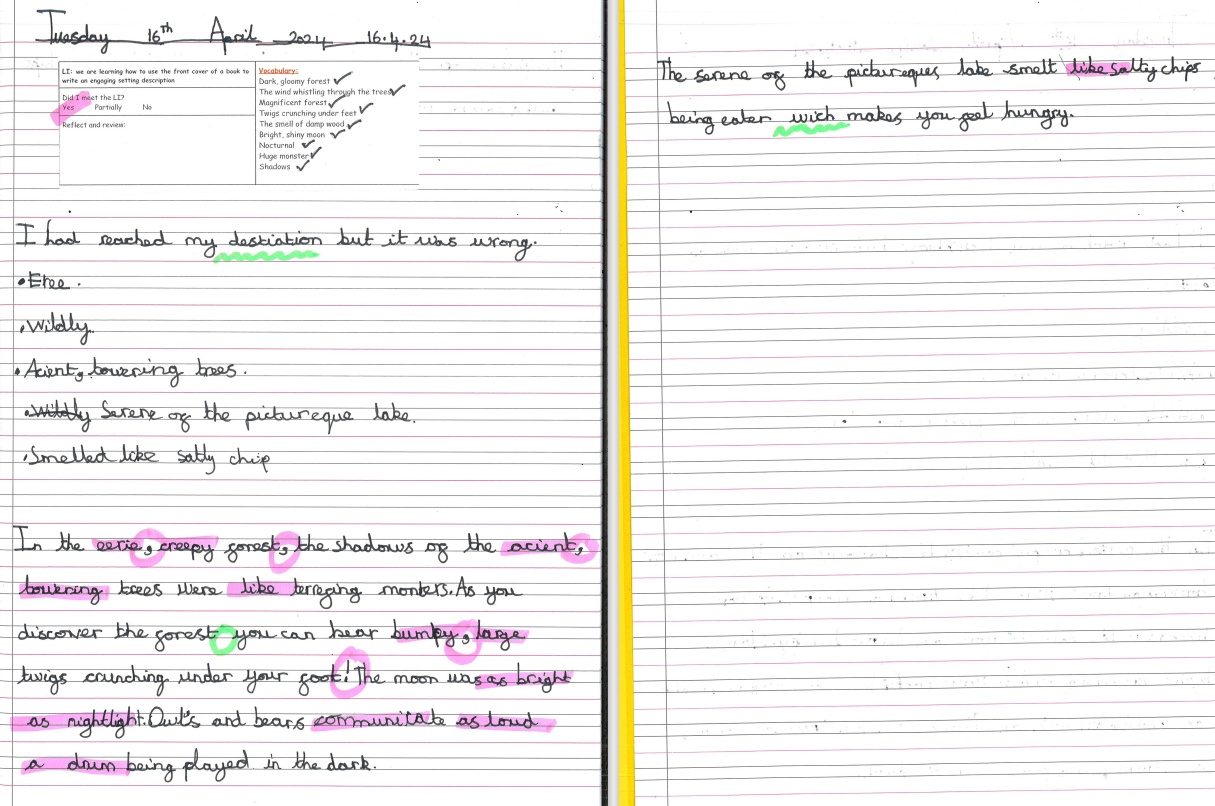 Tuesday 16th April 2024 16.4.24
LI: we are learning how to use the front cover of a book to
write an engaging setting description
Did I meet the LI?
Yes Partially No
Reflect and review:
Vocabulary:
Dark, gloomy forest
The wind whistling through the trees
Magnificent forest
Twigs crunching under feet
The smell of damp wood
Bright, shiny moon
Nocturnal
Huge monster
Shadows
I had reached my destiation but it was wrong.
• Eree.
• Wildly.
• Acient, towering trees.
• Wildly Serene of the pictureque lake.
• Smelled like saltly chip
In the eerie, creepy forest, the shadows of the acient,
towering trees were like terrefing monters. As you
discover the forest you can hear bumpy, large
twigs crunching under your foot! The moon was as bright
as nightlight. Owl's and bears communitate as loud
a drum being played in the dark.
The serene of the pictureques lake smelt like salty chips
being eater wich makes you feel hungry.